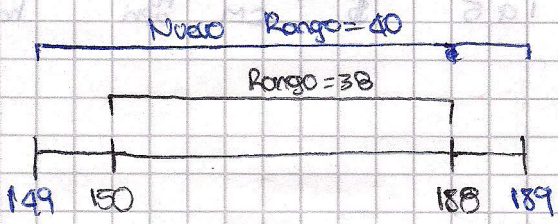 Nuevo Rango=40
Rango=38
149 150 188 189